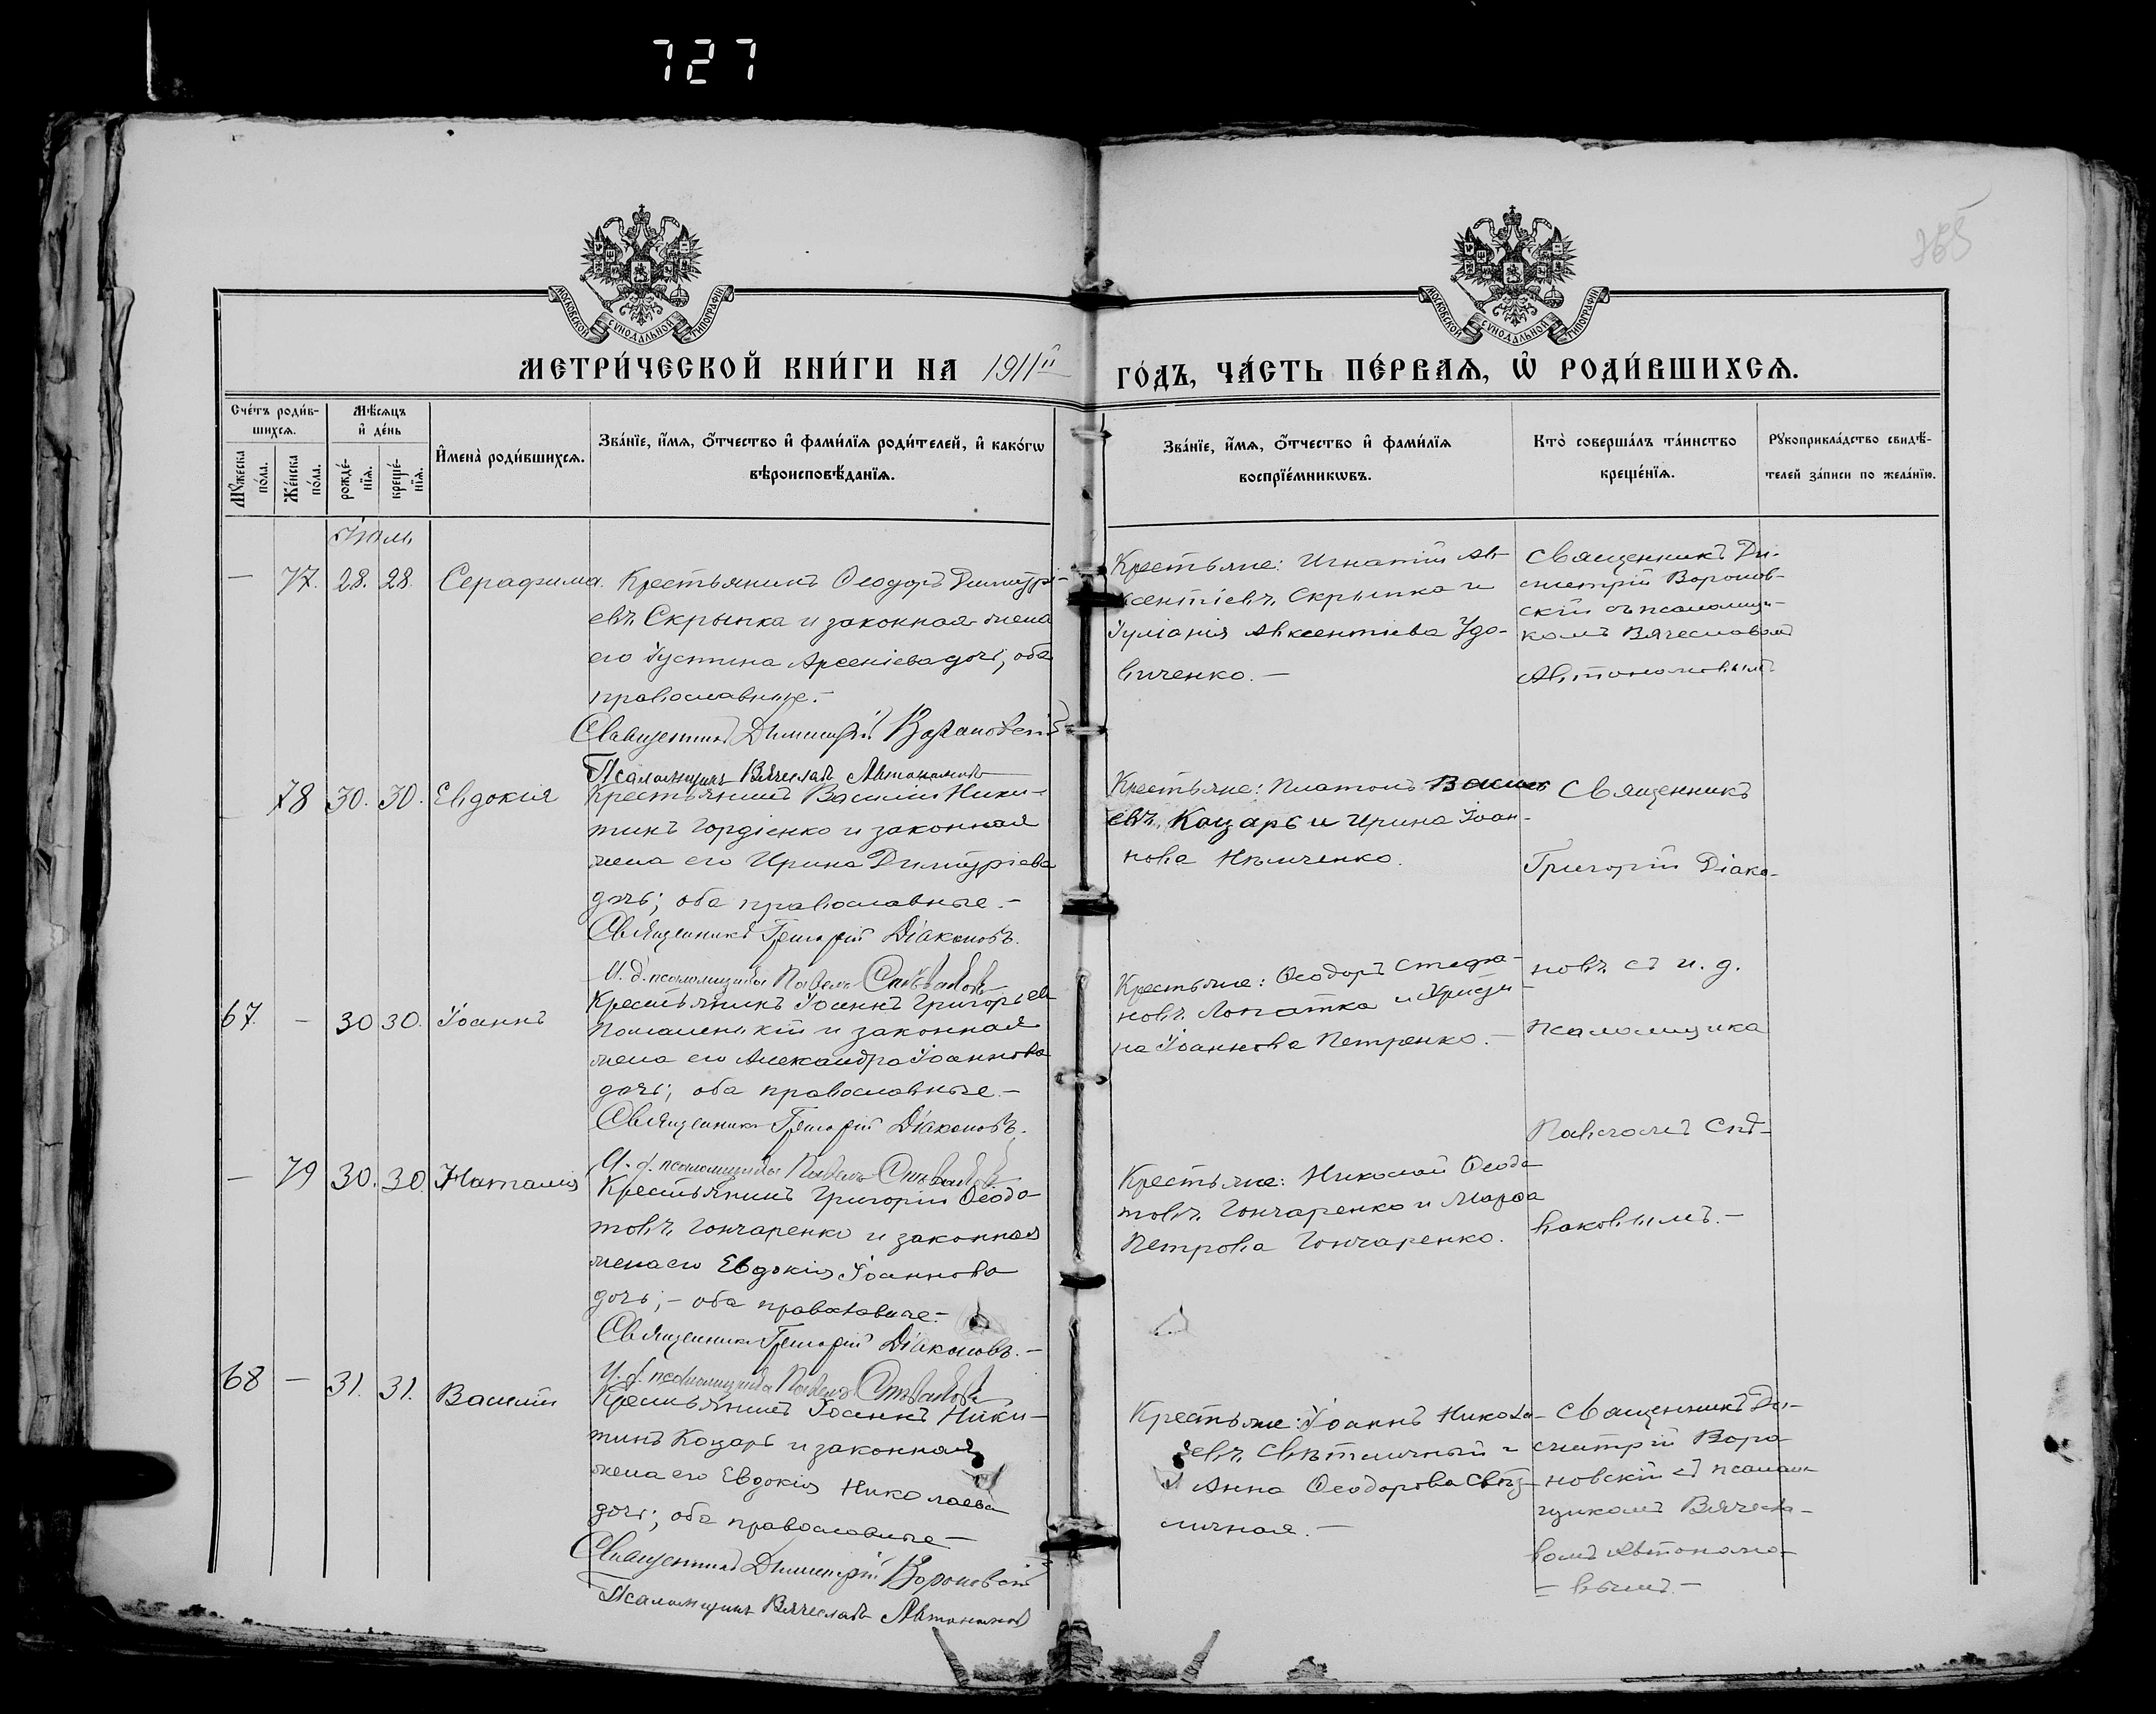 727
265
МОСКОВСКОЙ СѴНОДАЛЬНОЙ ТИПОГРАФІИ
МОСКОВСКОЙ СѴНОДАЛЬНОЙ ТИПОГРАФІИ
МЕТРИ́ЧЕСКОЙ КНИ́ГИ НА 1911й ГО́ДЪ, ЧА́СТЬ ПЕ́РВАѦ, Ѡ҆ РОДИ́ВШИХСѦ.
Сче́тъ роди́в-
шихсѧ.
Мꙋ́жеска по́ла.
Же́нска по́ла.
Мѣ́сѧцъ
и҆ де́нь
рожде́-
нїѧ.
креще́-
нїѧ.
И҆мена̀ роди́вшихсѧ.
Зва́нїе, и҆́мѧ, ѻ҆́тчество и҆ фами́лїѧ роди́телей, и҆ како́гѡ
вѣроисповѣ́данїѧ.
Зва́нїе, и҆́мѧ, ѻ҆́тчество и҆ фами́лїѧ
воспрїе́мникѡвъ.
Кто̀ соверша́лъ та́инство
креще́нїѧ.
Рꙋкоприкла́дство свидѣ́-
телей за́писи по жела́нїю.
Іюль
— 77. 28. 28. Серафима.
Крестьянинъ Ѳеодоръ Димитрі-
евъ Скрыпка и законная жена
его Іустина Арсеніева дочь, оба
православные.—
Священникъ Димитрій Вороновскій
Псаломщикъ Вячеславъ Автономовъ
Крестьяне: Игнатій Ав-
ксентіевъ Скрыпка и
Іуліанія Авксентіева Удо-
виченко.—
Священникъ Ди-
митрій Воронов-
скій съ псаломщи-
комъ Вячеславомъ
Автономовымъ
78 30. 30. Евдокія
Крестьянинъ Василій Ники-
тинъ Гордіенко и законная
жена его Ирина Димитріева
дочь; оба православные.—
Священникъ Григорій Діаконовъ.
И. д. псаломщика Павелъ
Крестьяне: Платонъ
евъ Коцарь и Ирина Іоан-
нова Нѣмченко.
Священникъ
Григорій Діако-
67. — 30 30. Іоаннъ
Крестьянинъ Іоаннъ Григорьев
и законная
жена его Александра Іоаннова
дочь; оба православные.—
Священникъ Григорій Діаконовъ.
И. д. псаломщика Павелъ
Крестьяне: Ѳеодоръ Стефа-
новъ Лопатка и Христи-
на Іоаннова Петренко.—
новъ съ и. д.
псаломщика
— 79 30. 30. Наталія
Крестьянинъ Григорій Ѳеодо-
товъ Гончаренко и законная
жена его Евдокія Іоаннова
дочь;— оба православные.—
Священникъ Григорій Діаконовъ.—
И. д. псаломщика Павелъ
Крестьяне: Николай Ѳеодо
товъ Гончаренко и Марѳа
Петрова Гончаренко.
Павломъ
ваковымъ.—
68 — 31. 31. Василій
Крестьянинъ Іоаннъ Ники-
тинъ Коцарь и законная
жена его Евдокія Николаева
дочь; оба православные—
Священникъ Димитрій Вороновскій
Псаломщикъ Вячеславъ Автономовъ
Крестьяне: Іоаннъ Никола-
евъ Свѣтличный и
Анна Ѳеодорова Свѣт-
личная.—
Священникъ Ди-
митрій Воро-
новскій съ псалом-
щикомъ Вячесла-
вомъ Автономо-
— вымъ.—